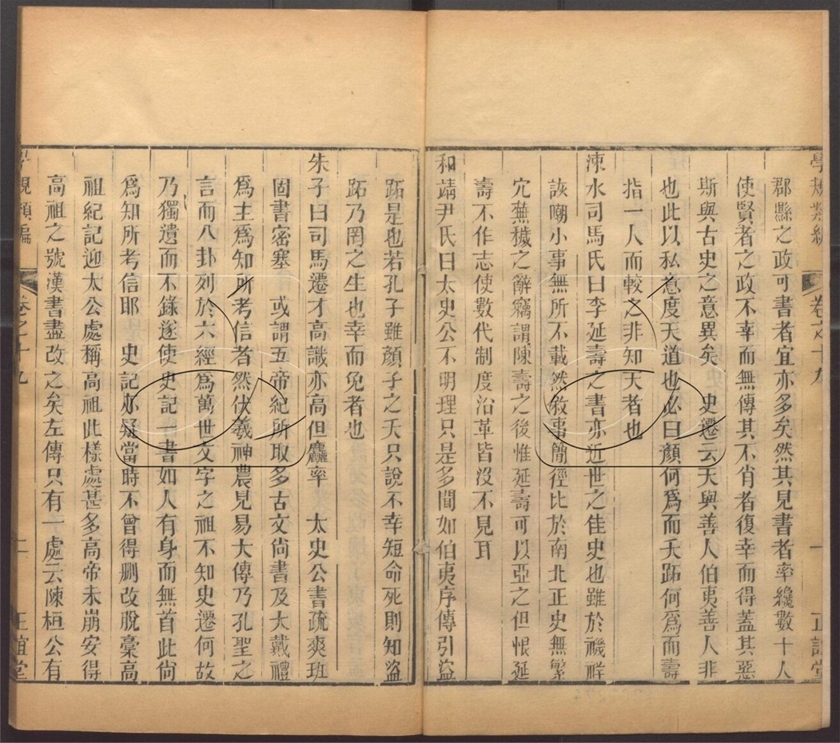 學規類編 卷之十九 一 正誼堂
郡縣之政可書者宜亦多矣然其見書者率纔數十人
使賢者之政不幸而無傳其不肖者復幸而得蓋其惡
斯與古史之意異矣 史遷云天與善人伯夷善人非
也此以私意度天道也必曰顏何爲而夭跖何爲而壽
指一人而較之非知天者也
涑水司馬氏曰李延壽之書亦近世之佳史也雖於禨祥
詼嘲小事無所不載然敘事簡徑比於南北正史無繁
冗蕪穢之辭竊謂陳壽之後惟延壽可以亞之但恨延
壽不作志使數代制度沿革皆沒不見耳
和靖尹氏曰太史公不明理只是多聞如伯夷序傳引盜
跖是也若孔子雖顏子之夭只說不幸短命死則知盜
跖乃罔之生也幸而免者也
朱子曰司馬遷才高識亦高但麤率 太史公書疏爽班
固書密塞 或謂五帝紀所取多古文尚書及大戴禮
爲主爲知所考信者然伏羲神農見易大傳乃孔聖之
言而八卦列於六經爲萬世文字之祖不知史遷何故
乃獨遺而不錄遂使史記一書如人有身而無首此尚
爲知所考信耶 史記亦疑當時不曾得刪改脫稾高
祖紀記迎太公處稱高祖此樣處甚多高帝未崩安得
高祖之號漢書盡改之矣左傳只有一處云陳桓公有
學規類編 卷之十九 二 正誼堂